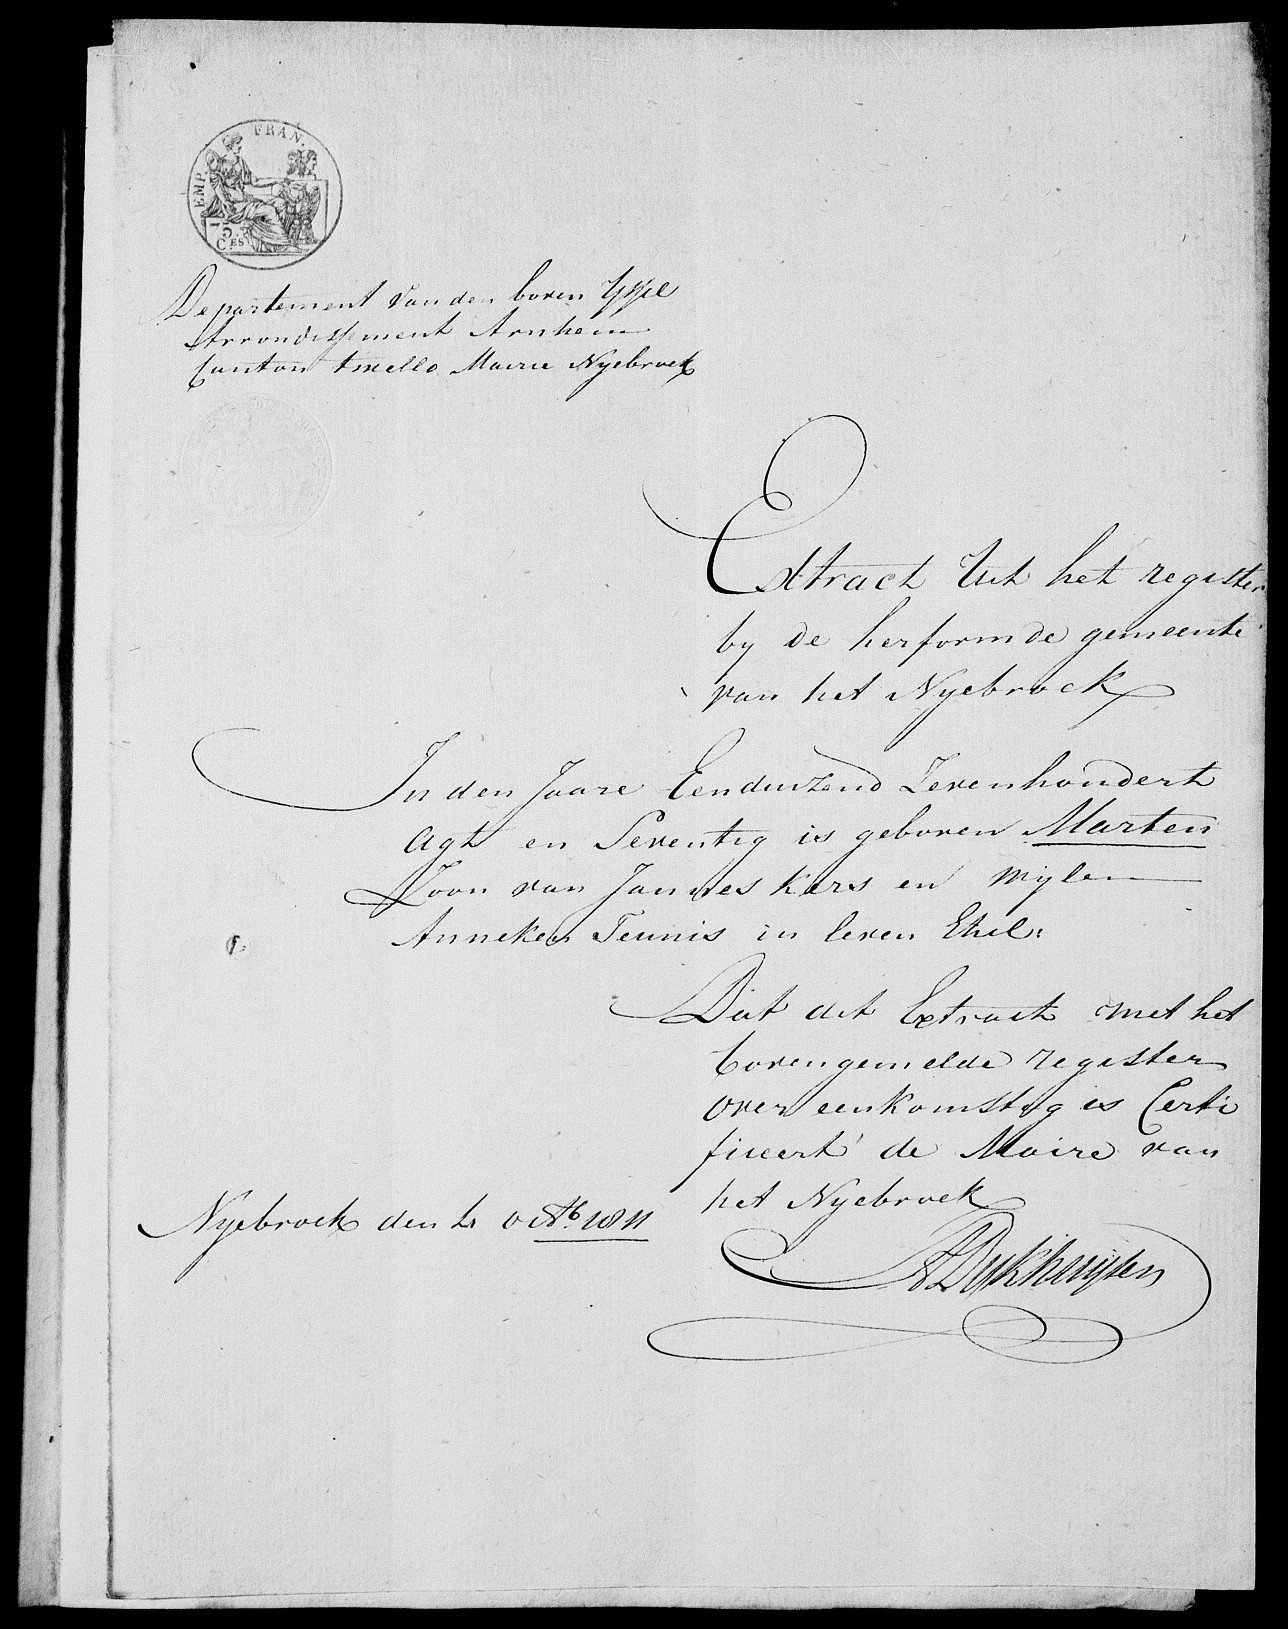 EMP. FRAN.
75.
C.ES
Departement van den boven Yssel
Arrondissement Arnhem
Canton twello Mairie Nyebroek
Extract Uit het register
by de herformde gemeente
van het Nyebroek
In den Jaare Eenduizend Zevenhondert
Agt en Seventig is geboren Marten
Zoon van Jannes Kers en wylen
Anneken Teunis in leven Ehel:
Dat dit Extract met het
bovengemelde register
over eenkomstig is Certi
ficeert de Maire van
het Nyebroek
Nyebroek den octb 1811
A Dykhuijsen